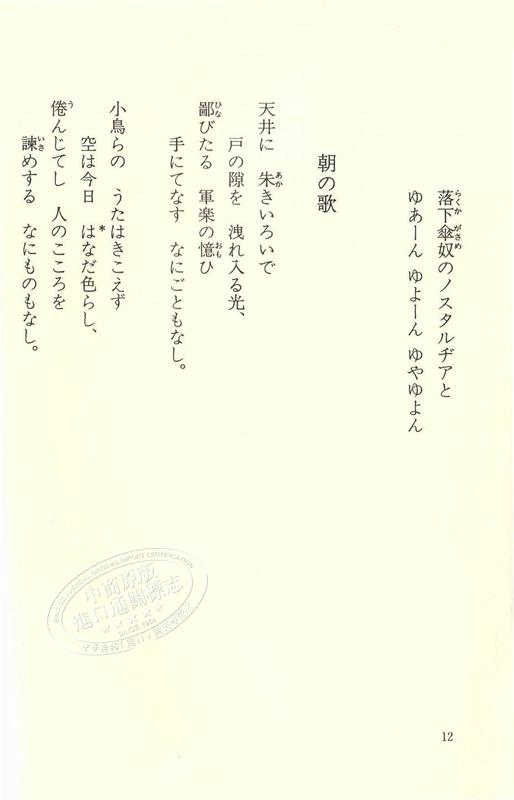 落下傘奴のノスタルヂアと
ゆあーん ゆよーん ゆやゆよん
朝の歌
天井に 朱きいろいで
戸の隙を 洩れ入る光、
鄙びたる 軍楽の憶ひ
手にてなす なにごともなし。
小鳥らの うたはきこえず
空は今日 はなだ色らし、
倦んじてし 人のこころを
諫めする なにものもなし。
12
中商原版
進口通關標志